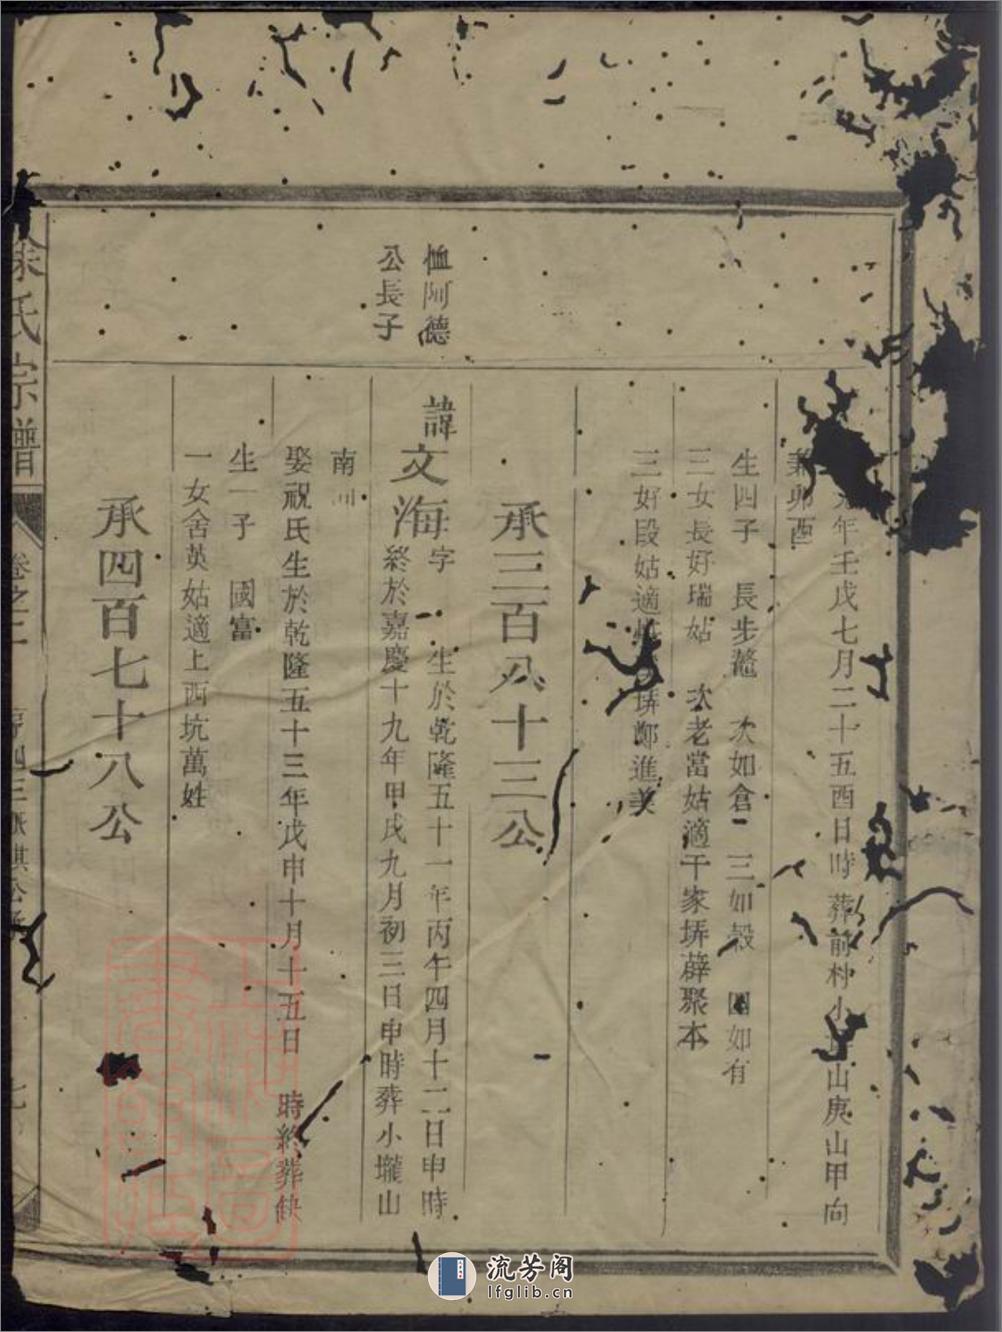 年壬戌七月二十五酉日時葬前村小山庚山甲向
兼卯酉
生四子 長步鰲 次如倉 三如穀 四如有
三女長好瑞姑 次老當姑適干家塝薛聚本
三好段姑適塝鄭進美
承三百八十三公
恤阿德
公長子
諱文海字 生於乾隆五十一年丙午四月十二日申時
終於嘉慶十九年甲戌九月初三日申時葬小壠山
南
娶祝氏生於乾隆五十三年戊申十月十五日 時終葬缺
生一子 國富
一女舍英姑適上西坑萬姓
承四百七十八公
徐氏宗譜 卷之二
流芳阁
lfglib.cn